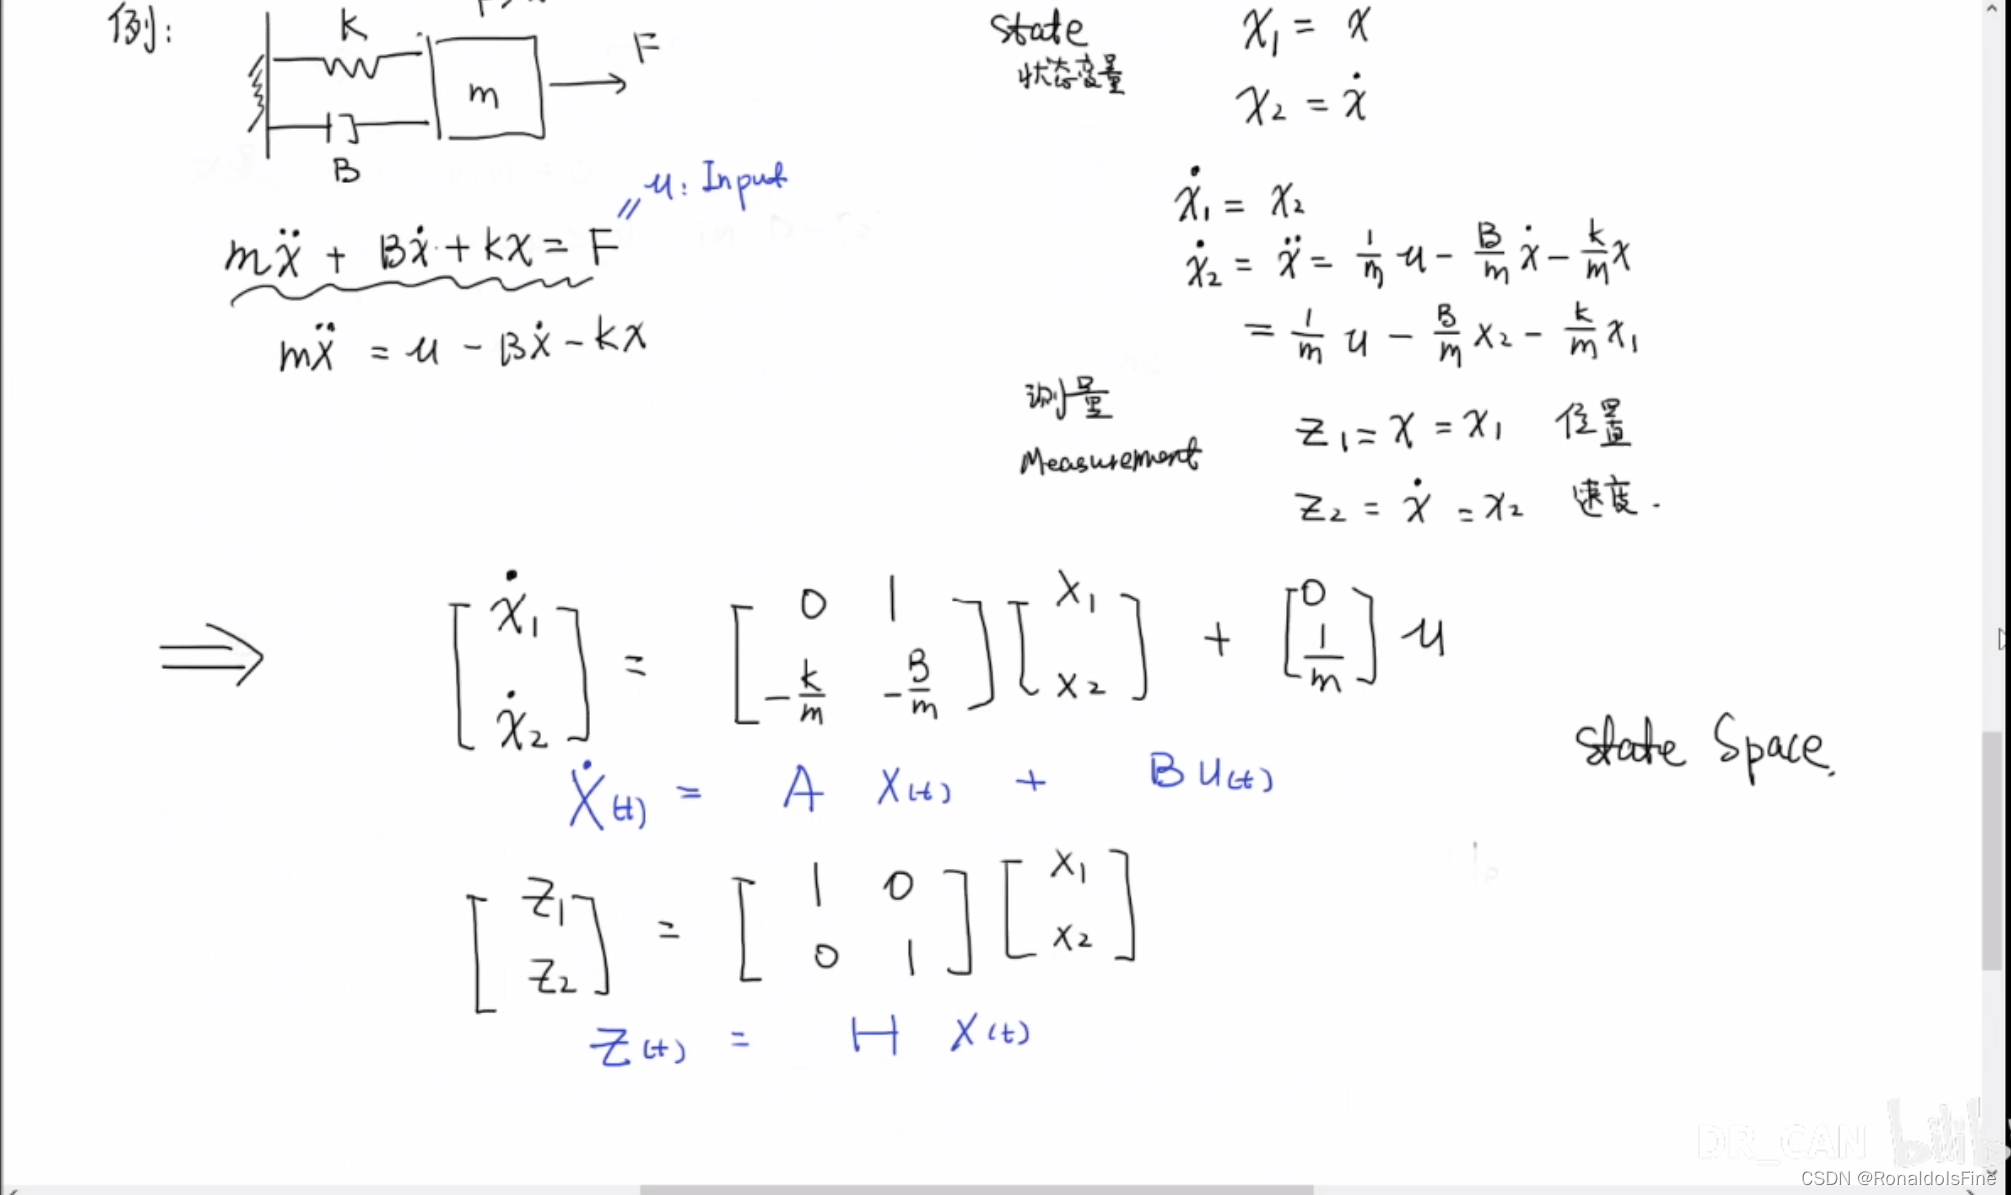 例:
k
m
F
B
u: Input
mẍ + Bẋ + kx = F
mẍ = u - Bẋ - kx
State
状态变量
x₁ = x
x₂ = ẋ
ẋ₁ = x₂
ẋ₂ = ẍ = 1/m u - B/m ẋ - k/m x
= 1/m u - B/m x₂ - k/m x₁
测量
Measurement
z₁ = x = x₁ 位置
z₂ = ẋ = x₂ 速度.
⇒ [ẋ₁ ẋ₂] = [0 1 -k/m -B/m] [x₁ x₂] + [0 1/m] u
State Space.
Ẋ(t) = A X(t) + B u(t)
[z₁ z₂] = [1 0 0 1] [x₁ x₂]
Z(t) = H X(t)
DR_CAN bilib
CSDN @RonaldoIsFine